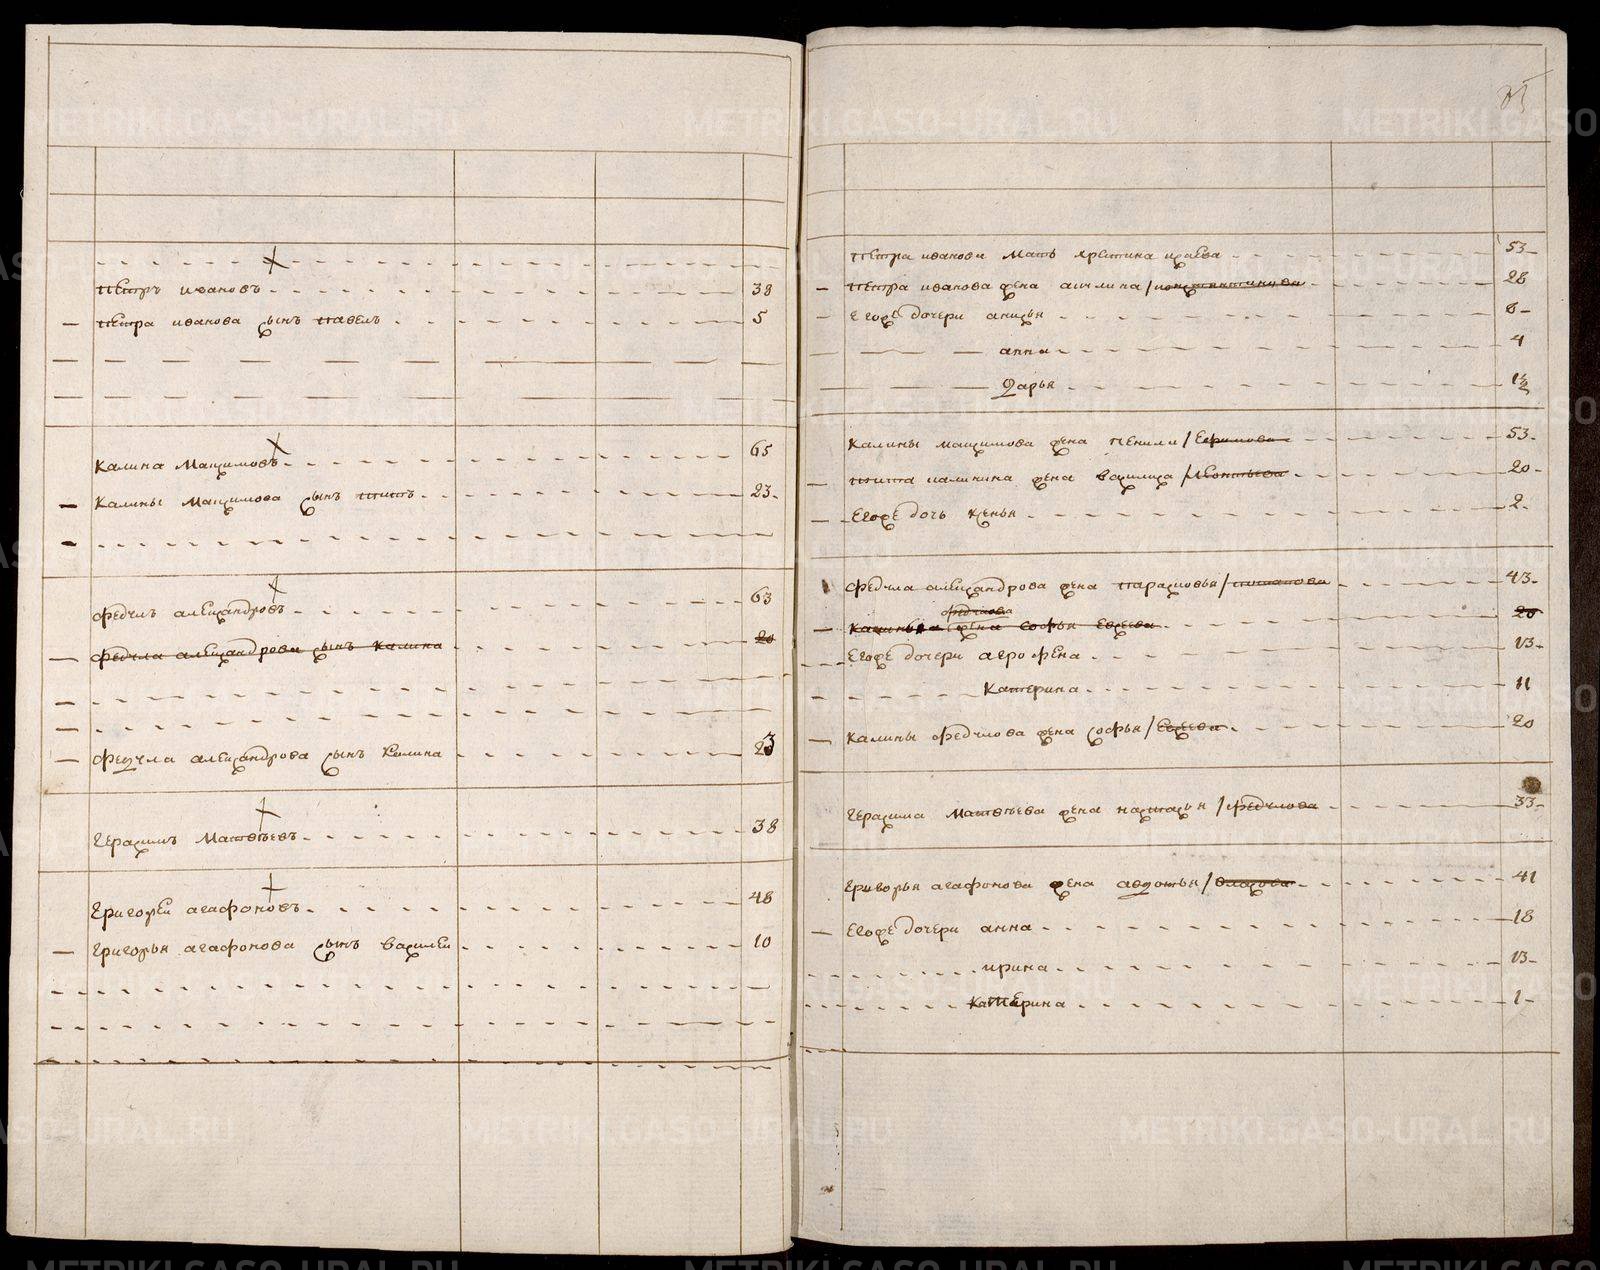 петръ ивановъ 38
петра иванова сынъ павелъ 5
калина максимовъ 65
калины максимова сынъ титъ 23
федулъ александровъ 63
федула александрова сынъ калина 20
федула александрова сынъ калина 23
герасимъ матвѣевъ 38
григореи агафоновъ 48
григорья агафонова сынъ василеи 10
петра иванова мать христина исаева 53
петра иванова жена акилина 28
егоже дочери анисья 8
анна 4
дарья 1½
калины максимова жена ненила /ефимова 53
тита калинина жена василиса /леонтьева 20
егоже дочь ксенья 2
федула александрова жена парасковья /потапова 43
федулова
калины жена софья евсева 20
егоже дочери агрофена 13
катерина 11
калины федулова жена софья /евсева 20
герасима матвѣева жена настасья /федулова 33
григорья агафонова жена авдотья /власова 41
егоже дочери анна 18
ирина 13
катерина 1
METRIKI.GASO-URAL.RU